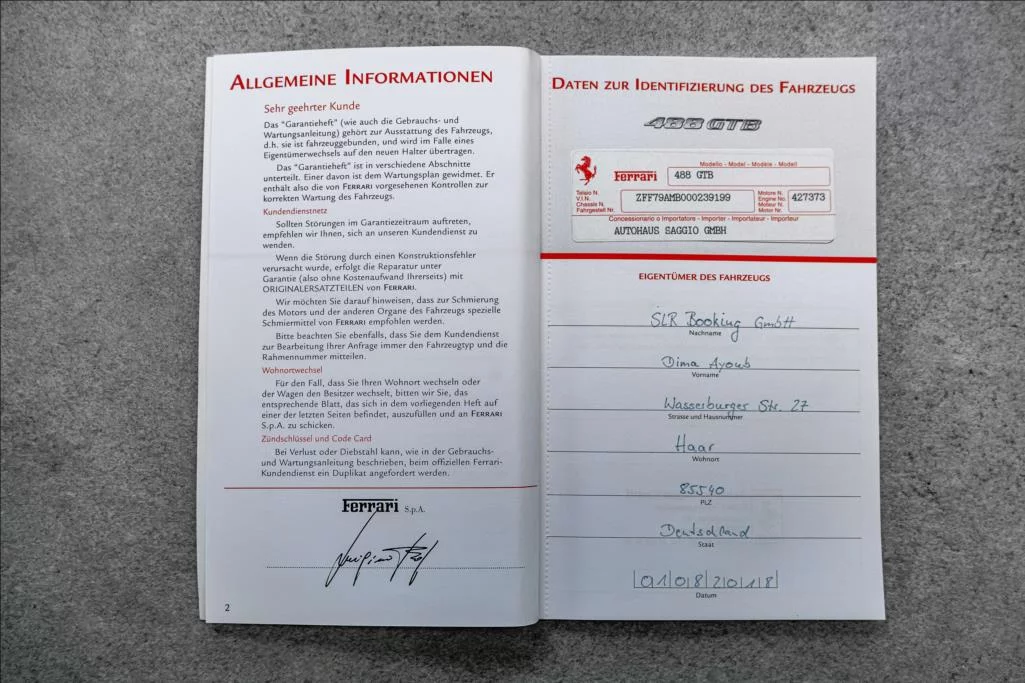 ALLGEMEINE INFORMATIONEN
Sehr geehrter Kunde
Das "Garantieheft" (wie auch die Gebrauchs- und
Wartungsanleitung) gehört zur Ausstattung des Fahrzeugs,
d.h. sie ist fahrzeuggebunden, und wird im Falle eines
Eigentümerwechsels auf den neuen Halter übertragen.
Das "Garantieheft" ist in verschiedene Abschnitte
unterteil. Einer davon ist dem Wartungsplan gewidmet. Er
enthält also die von FERRARI vorgesehenen Kontrollen zur
korrekten Wartung des Fahrzeugs.
Kundendienstnetz
Sollten Störungen im Garantiezeitraum auftreten,
empfehlen wir Ihnen, sich an unseren Kundendienst zu
wenden.
Wenn die Störung durch einen Konstruktionsfehler
verursacht wurde, erfolgt die Reparatur unter
Garantie (also ohne Kostenaufwand Ihrerseits) mit
ORIGINALERSATZTEILEN von FERRARI.
Wir möchten Sie darauf hinweisen, dass zur Schmierung
des Motors und der anderen Organe des Fahrzeugs spezielle
Schmiermittel von FERRARI empfohlen werden.
Bitte beachten Sie ebenfalls, dass Sie dem Kundendienst
zur Bearbeitung Ihrer Anfrage immer den Fahrzeugtyp und die
Rahmennummer mitteilen.
Wohnortwechsel
Für den Fall, dass Sie Ihren Wohnort wechseln oder
der Wagen den Besitzer wechselt, bitten wir Sie, das
entsprechende Blatt, das sich in dem vorliegenden Heft auf
einer der letzten Seiten befindet, auszufüllen und an FERRARI
S.p.A. zu schicken.
Zündschlüssel und Code Card
Bei Verlust oder Diebstahl kann, wie in der Gebrauchs-
und Wartungsanleitung beschrieben, beim offiziellen Ferrari-
Kundendienst ein Duplikat angefordert werden.
Ferrari S.p.A.
2
DATEN ZUR IDENTIFIZIERUNG DES FAHRZEUGS
488 GTB
Modello - Model - Modèle - Modell
Ferrari 488 GTB
Telaio N.
V.I.N.
Chassis N.
Fahrgestell Nr.
ZFF79AMB000239199
Motore N.
Engine No.
Moteur N.
Motor Nr.
427373
Concessionario o Importatore - Importer - Importateur - Importeur
AUTOHAUS SAGGIO GMBH
EIGENTÜMER DES FAHRZEUGS
SLR Booking GmbH
Nachname
Dima Ayoub
Vorname
Wasserburger Str. 27
Strasse und Hausnummer
Haar
Wohnort
85540
PLZ
Deutschland
Staat
01082018
Datum